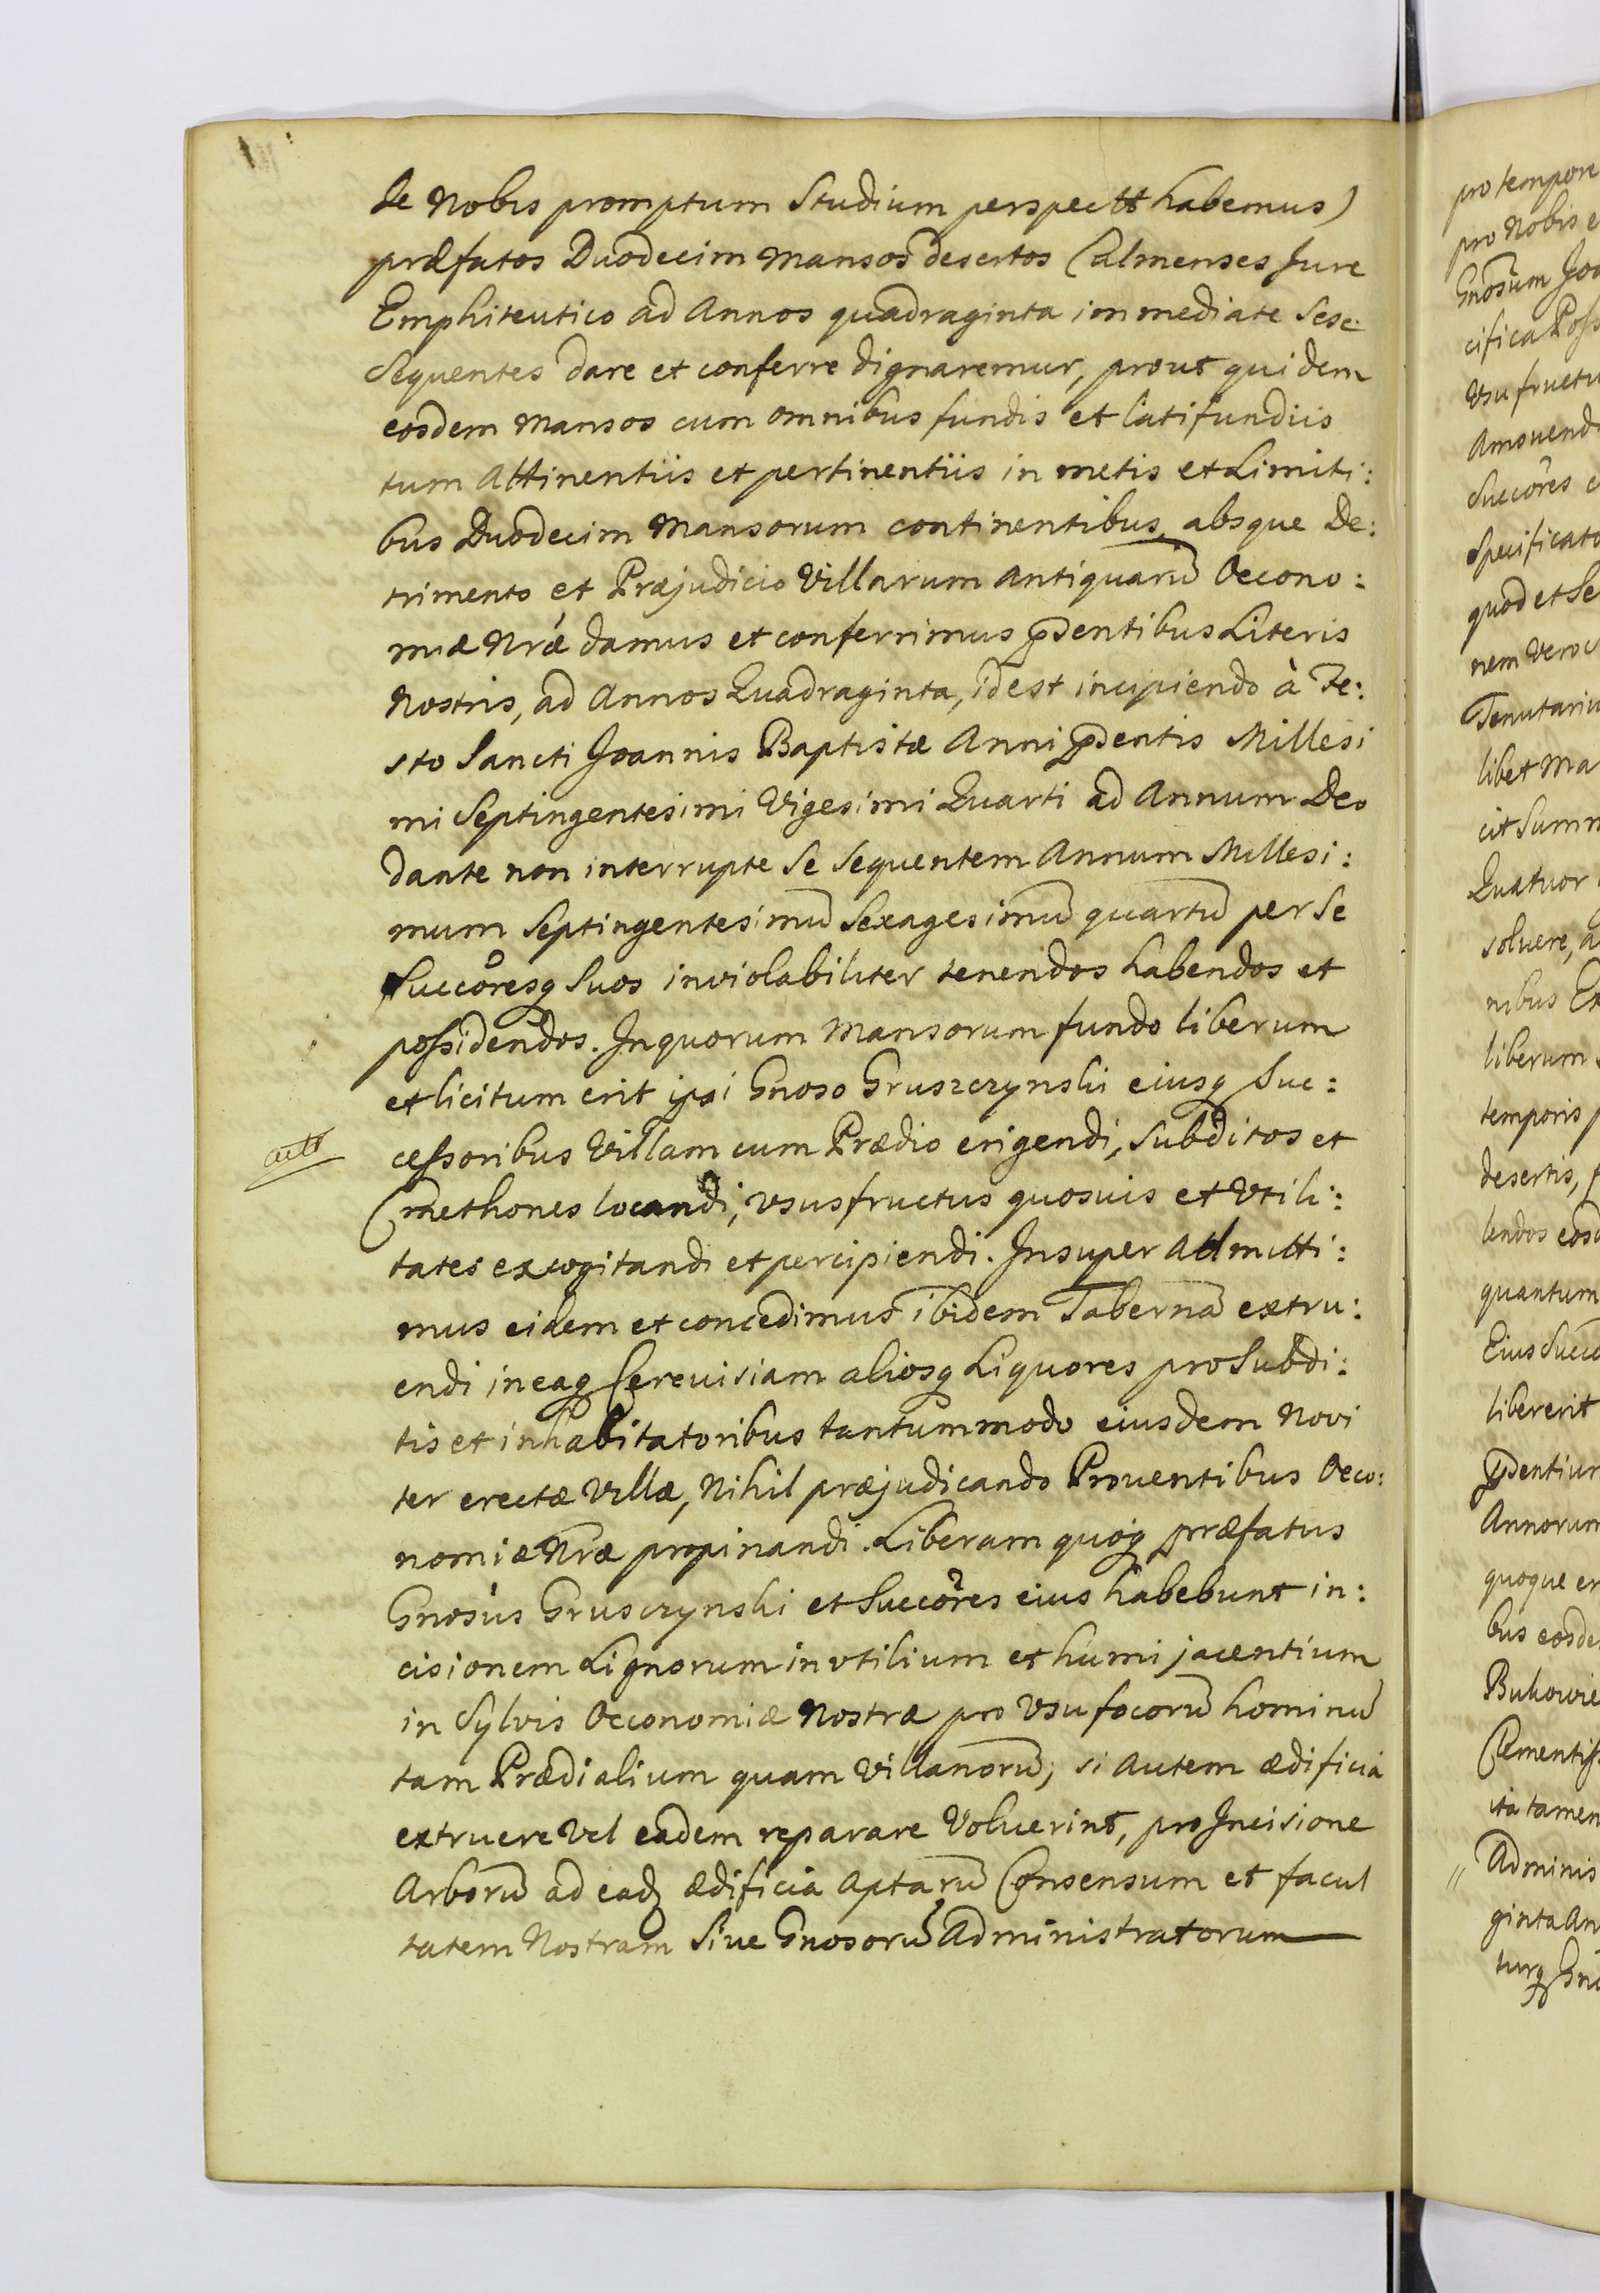 de Nobis promptum Studium perspectū habemus)
præfatos Duodecim Mansos desertos Culmenses Jure
Emphiteutico ad Annos quadraginta immediate Sese
Sequentes dare et conferre dignaremur, prout quidem
eosdem Mansos cum omnibus fundis et latifundiis
tum Attinentiis et pertinentiis in metis et Limiti:
bus Duodecim Mansorum continentibus, absque De:
trimento et Præjudicio Villarum Antiquarū Oecono:
miæ Nræ damus et conferrimus pñdentibus Literis
Nostris, ad Annos Quadraginta, idest incipiendo à Fe:
sto Sancti Joannis Baptistæ Anni pñdentis Millesi
mi Septingentesimi Vigesimi Quarti ad Annum Deo
dante non interrupte Se Sequentem Annum Millesi:
mum Septingentesimū Sexagesimū quartū per Se
Succoresq Suos inviolabiliter tenendos habendos et
possidendos. In quorum Mansorum fundo liberum
et licitum erit ipsi Gnoso Gruszczynski eiusq Suc:
cessoribus Villam cum Prædio erigendi, Subditos et
Cmethones locandi, vsusfructus quosuis et Vtili:
tates excogitandi et percipiendi. Insuper Admitti:
mus eidem et concedimus ibidem Tabernā extru:
endi in eaq Cerevisiam aliosq Liquores pro Subdi:
tis et inhabitatoribus tantummodo eiusdem Novi
ter erectæ Villæ, Nihil præjudicando Proventibus Oeco:
nomiæ Nræ propinandi. Liberam quoq præfatus
Gnosus Grusczynski et Succores eius habebunt in:
cisionem Lignorum invtilium et humi jacentium
in Sylvis Oeconomiæ Nostræ pro Vsu focorū hominū
tam Prædialium quam Villanorū; si Autem ædificia
extruere Vel eadem reparare Voluerint, pro Incisione
Arborū ad eadȝ ædificia Aptarū Consensum et facul
tatem Nostram Sive Gnosorū Administratorum